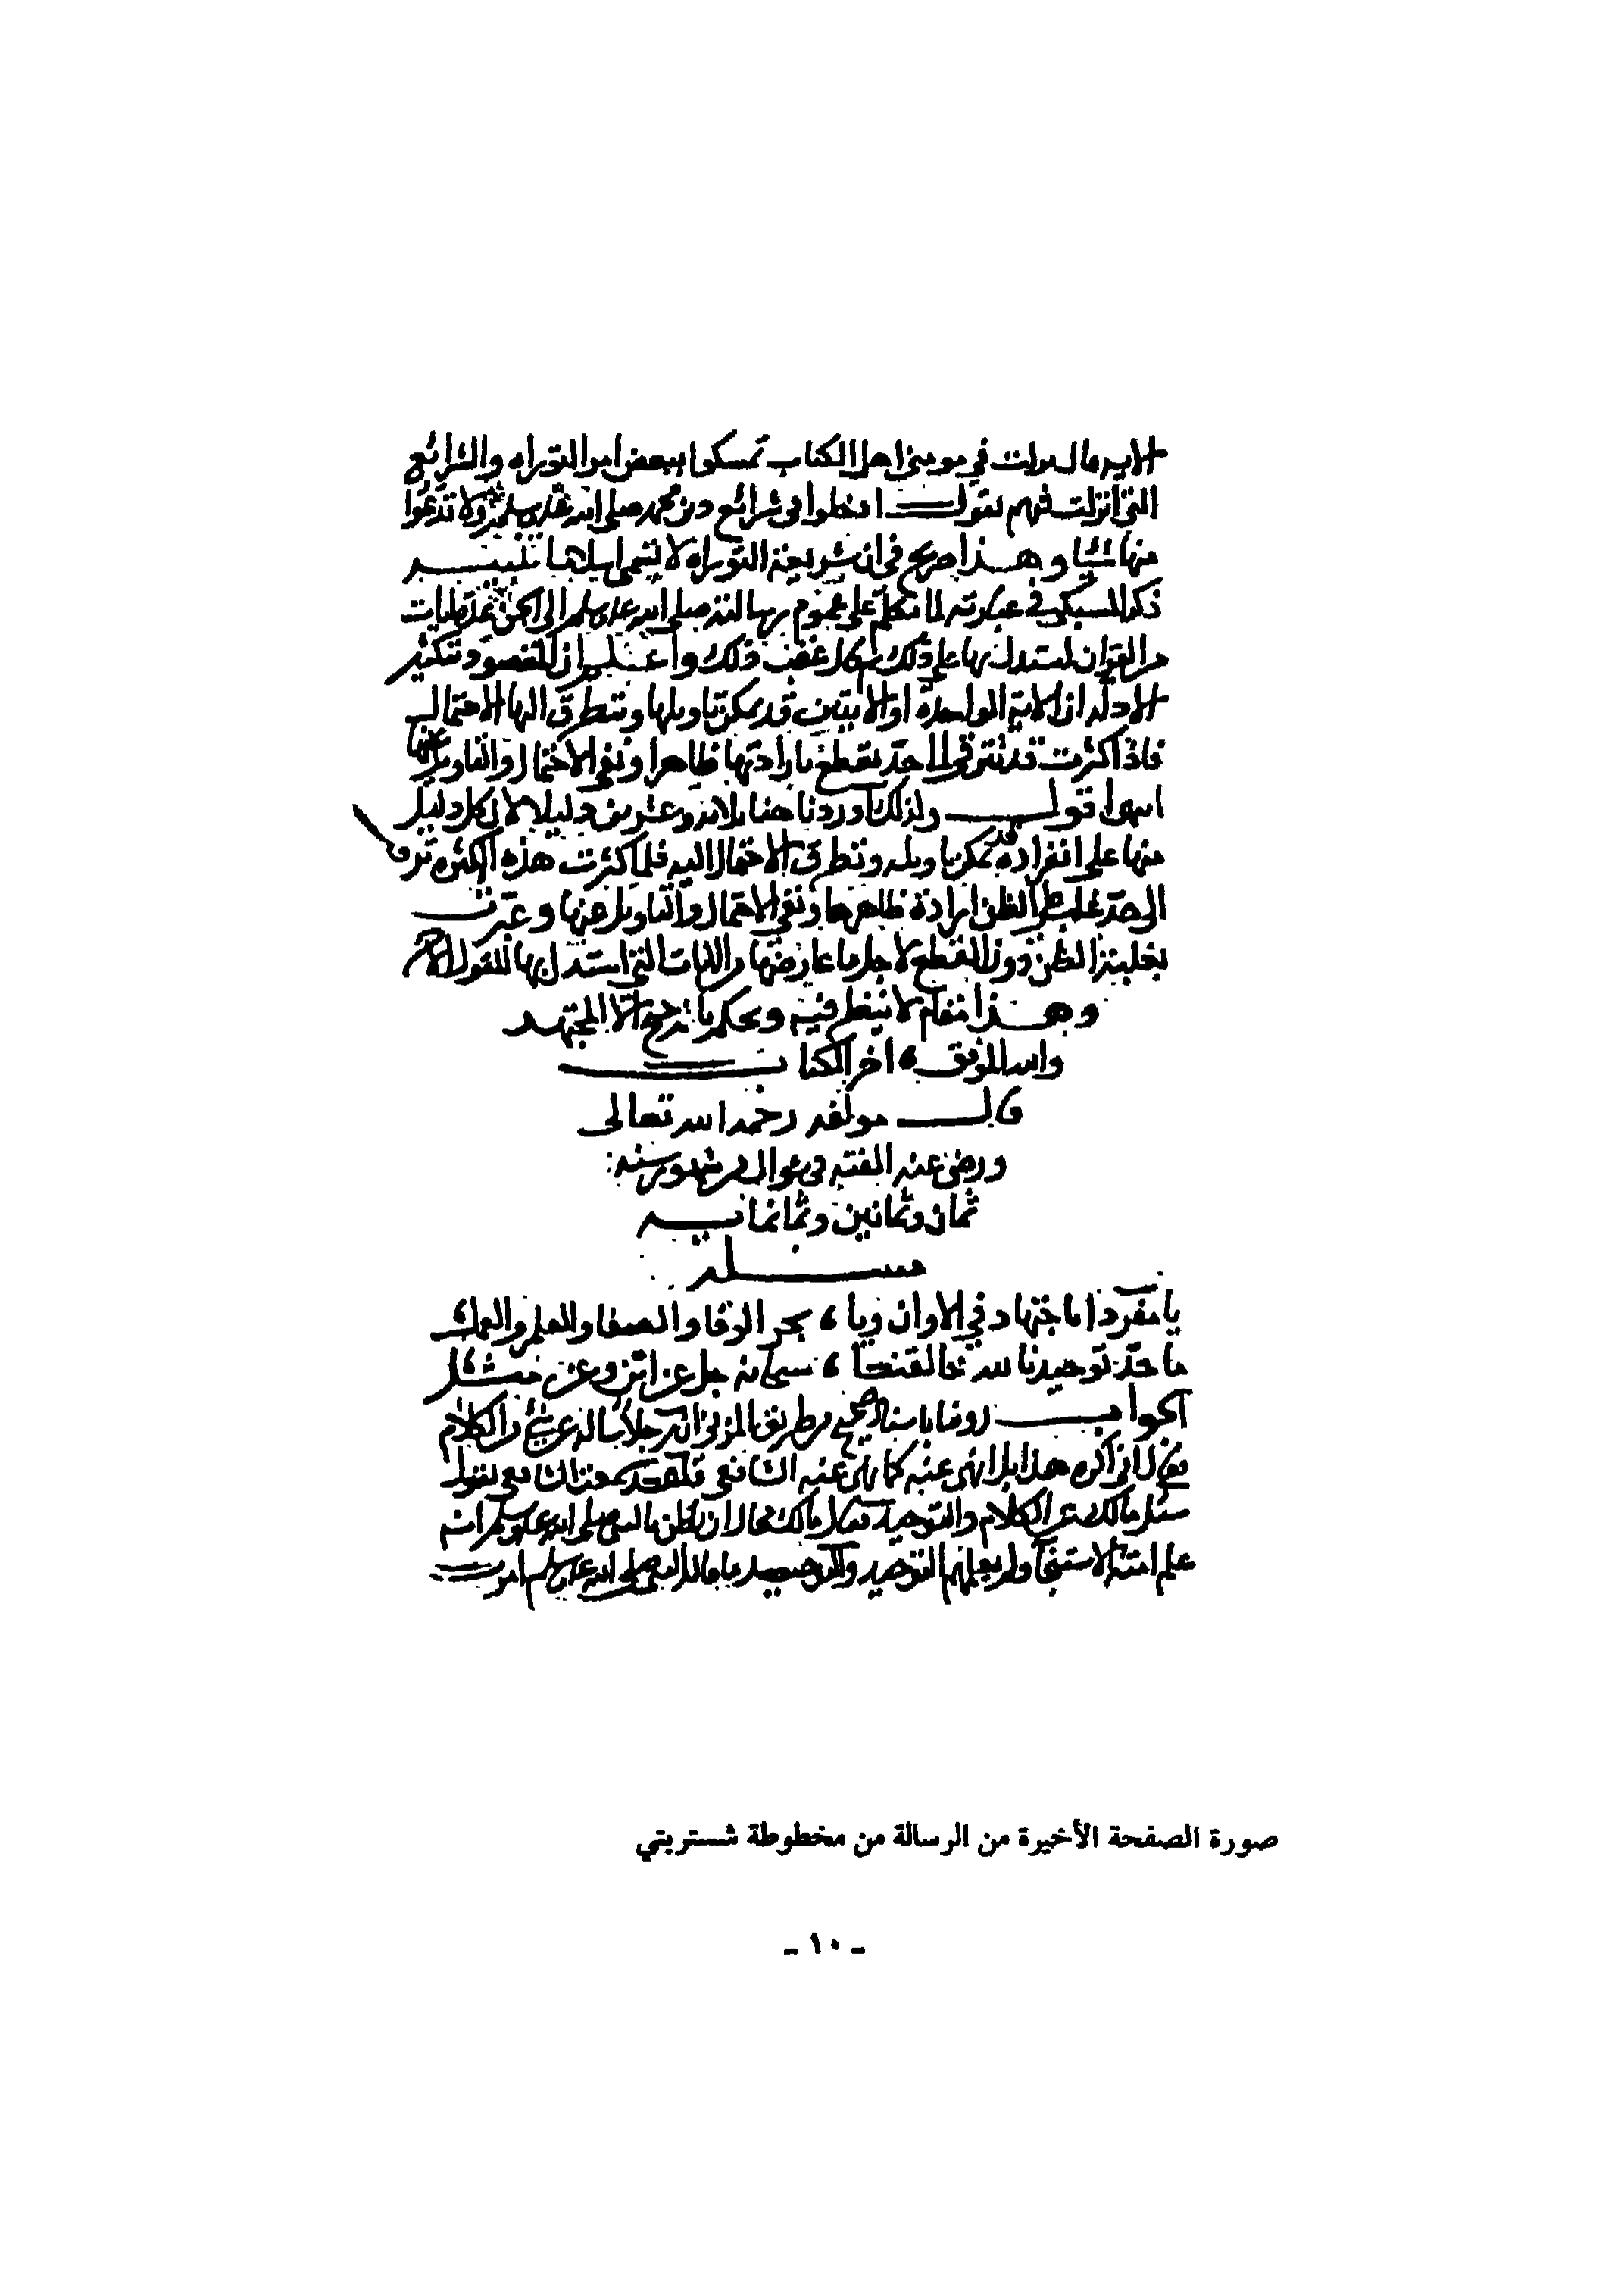 الايه قال نزلت في مومني اهل الكتاب تمسكوا ببعض امر التوراه والشرائع
التي انزلت فيهم يقول ادخلوا في شرائع دين محمد صلى الله عليه وسلم ولا تدعوا
منها شيئا وهذا صريح في ان شريعة التوراه لا تسمى اسلاما تنبيه
ذكر السبكي في عبارته لما تكلم على عموم رسالته صلى الله عليه وسلم الى الجن عدة ايات
من القران استدل بها على ذلك ثم قال عقب ذلك واعلم ان المقصود بتكثير
الادله ان الاية الواحدة او الايتين قد يمكن تاويلها ويتطرق اليها الاحتمال
فاذا كثرت قد تترقى الى حد يقطع بارادتها ظاهرا ونفي الاحتمال والتاويل عنها
انتهى اقول ولذلك اوردنا هنا ثلاثة وعشرين دليلا لان كل دليل
منها على انفراده قد يمكن تاويله ويتطرق الاحتمال اليه فلما كثرت هذه الكثره ترقى
الى حد غلب على الظن ارادة ظاهرها ونفي الاحتمال والتاويل عنها وعبرت
بغلبة الظن دون القطع لاجل ما عارضها من الايات التي استدل بها للقول الاخر
وهذا مقام لا ينظر فيه ويحكم بالترجيح الا المجتهد
والله الموفق ، اخر الكتاب
قال مولفه رحمه الله تعالى
ورضي عنه الفته في شوال من شهور سنه
ثمان وثمانين وثمانمائيه
مسئله
يا مفردا باجتهاد في الاوان ويا ، بحر الوفا والصفا والعلم والعمل
ما حد توحيدنا لله خالقنا ، سبحانه جل عن اين وعن مثل
الجواب روينا باسناد صحيح من طريق المزني ان رجلا ساله عن شئ من الكلام
فقال اني اكره هذا بل انهى عنه كما نهى عنه الشافعي فلقد سمعت الشافعي يقول
سئل مالك عن الكلام والتوحيد فقال مالك محال ان يظن بالنبي صلى الله عليه وسلم انه
علم امته الاستنجا ولم يعلمهم التوحيد والتوحيد ما قاله النبي صلى الله عليه وسلم امرت
صورة الصفحة الأخيرة من الرسالة من مخطوطة شستربتي
- ١٠ -